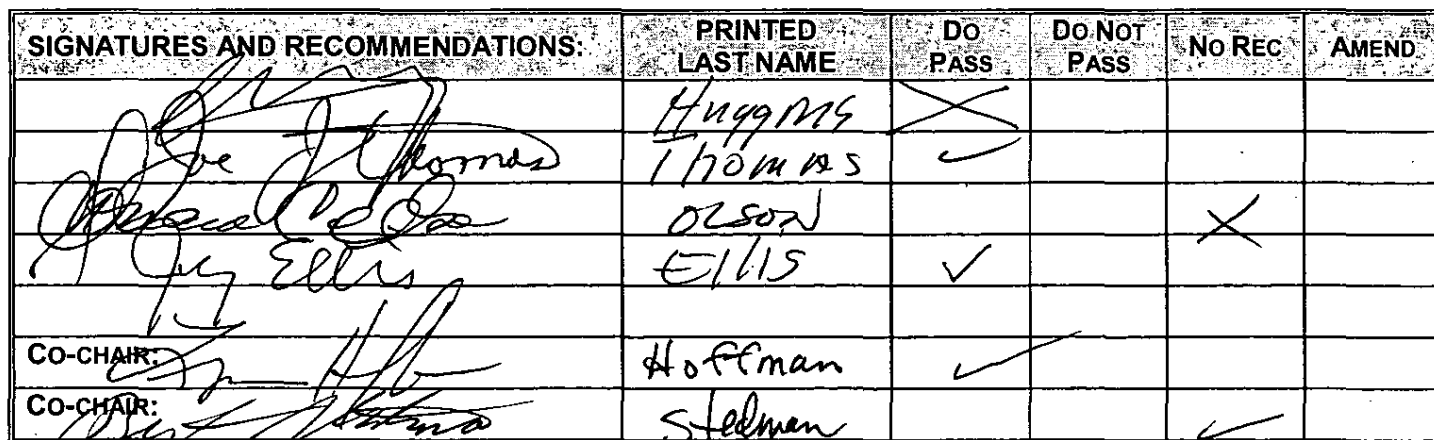 SIGNATURES AND RECOMMENDATIONS: PRINTED LAST NAME DO PASS DO NOT PASS NO REC AMEND
Huggins X
Joe J Thomas Thomas ✓
Olson X
Ellis Ellis ✓
CO-CHAIR: Hoffman ✓
CO-CHAIR: Bert Stedman ✓